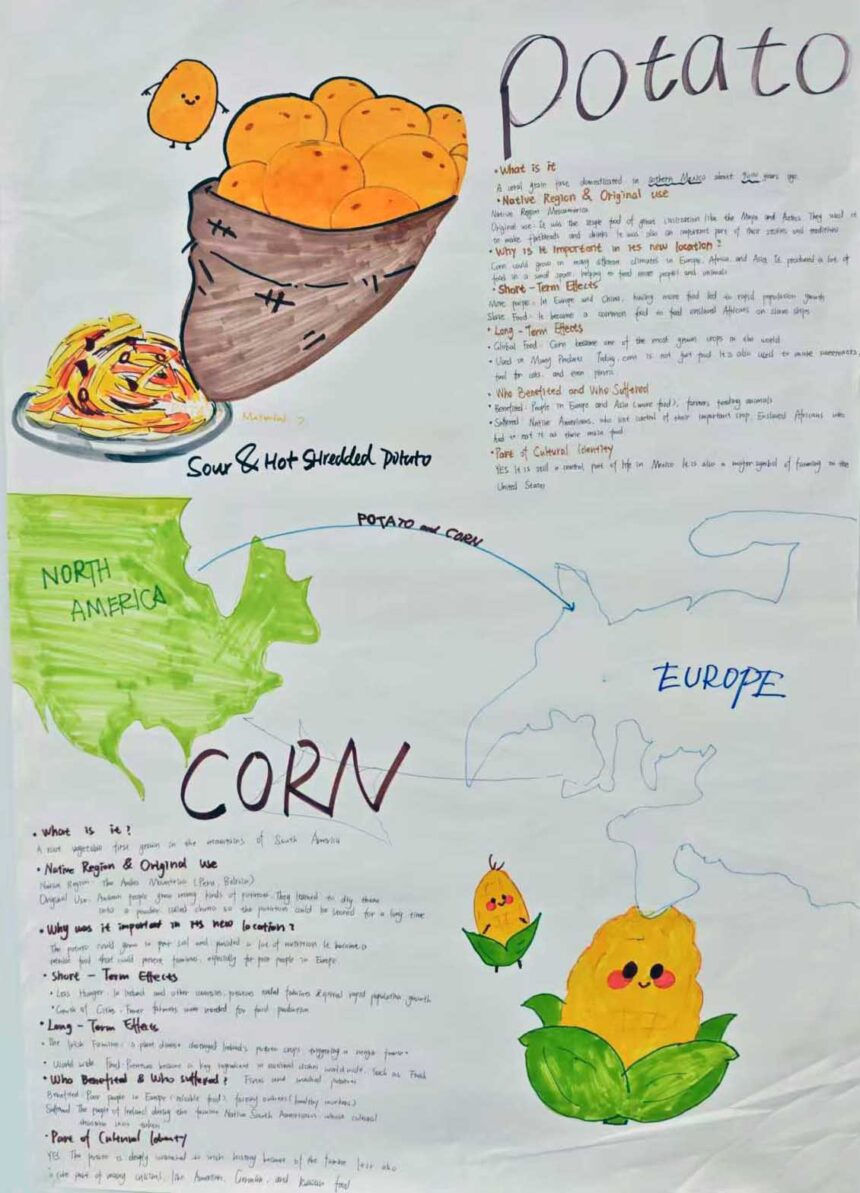 Potato
• What is it
A cereal grain first domesticated in southern Mexico about 9000 years ago.
• Native Region & Original use
Native Region Mesoamerica
Original use: It was the staple food of great civilization like the Maya and Aztecs. They used it
to make flatbreads and drinks. It was also an important part of their stories and traditions
• Why is it Important in its new location?
Corn could grow in many different climates in Europe, Africa, and Asia. It produced a lot of
food in a small space, helping to feed more people and animals
• Short-Term Effects
More people: In Europe and China, having more food led to rapid population growth
Slave Food: It became a common food to feed enslaved Africans on slave ships
• Long-Term Effects
• Global Food: Corn became one of the most grown crops in the world
• Used in Many Products: Today, corn is not just food. It is also used to make sweeteners,
fuel for cars, and even plastic
• Who Benefited and Who Suffered
• Benefited: People in Europe and Asia (more food), farmers feeding animals
• Suffered: Native Americans, who lost control of their important crop, Enslaved Africans who
had to eat it as their main food
• Part of Cultural Identity
YES. It is still a central part of life in Mexico. It is also a major symbol of farming in the
United States
Sour & Hot Shredded potato
NORTH
AMERICA
POTATO and CORN
EUROPE
CORN
• What is it?
A root vegetable first grown in the mountains of South America
• Native Region & Original Use
Native Region: The Andes Mountains (Peru, Bolivia)
Original Use: Andean people grew many kinds of potatoes. They learned to dry them
into a powder called chuno so the potatoes could be stored for a long time
• Why was it important in its new location?
The potato could grow in poor soil and provided a lot of nutrition. It became a
food that could prevent famines, especially for poor people in Europe
• Short-Term Effects
• Less Hunger: In Ireland and other countries, potatoes ended famines & rapid population growth
• Growth of Cities: Fewer farmers were needed for food production
• Long-Term Effects
• The Irish Famine: a plant disease destroyed Ireland's potato crops, triggering a major famine
• World wide Food: Potatoes became a key ingredient in national dishes worldwide. Such as
• Who Benefited & Who suffered? Fries and mashed potatoes
Benefited: Poor people in Europe (reliable food), factory owners (healthy workers)
Suffered: The people of Ireland during the famine Native South Americans whose cultural
was taken
• Part of Cultural Identity
YES. The potato is deeply connected to Irish history because of the famine. It is also
a core part of many cuisines, like American, German, and Russian food